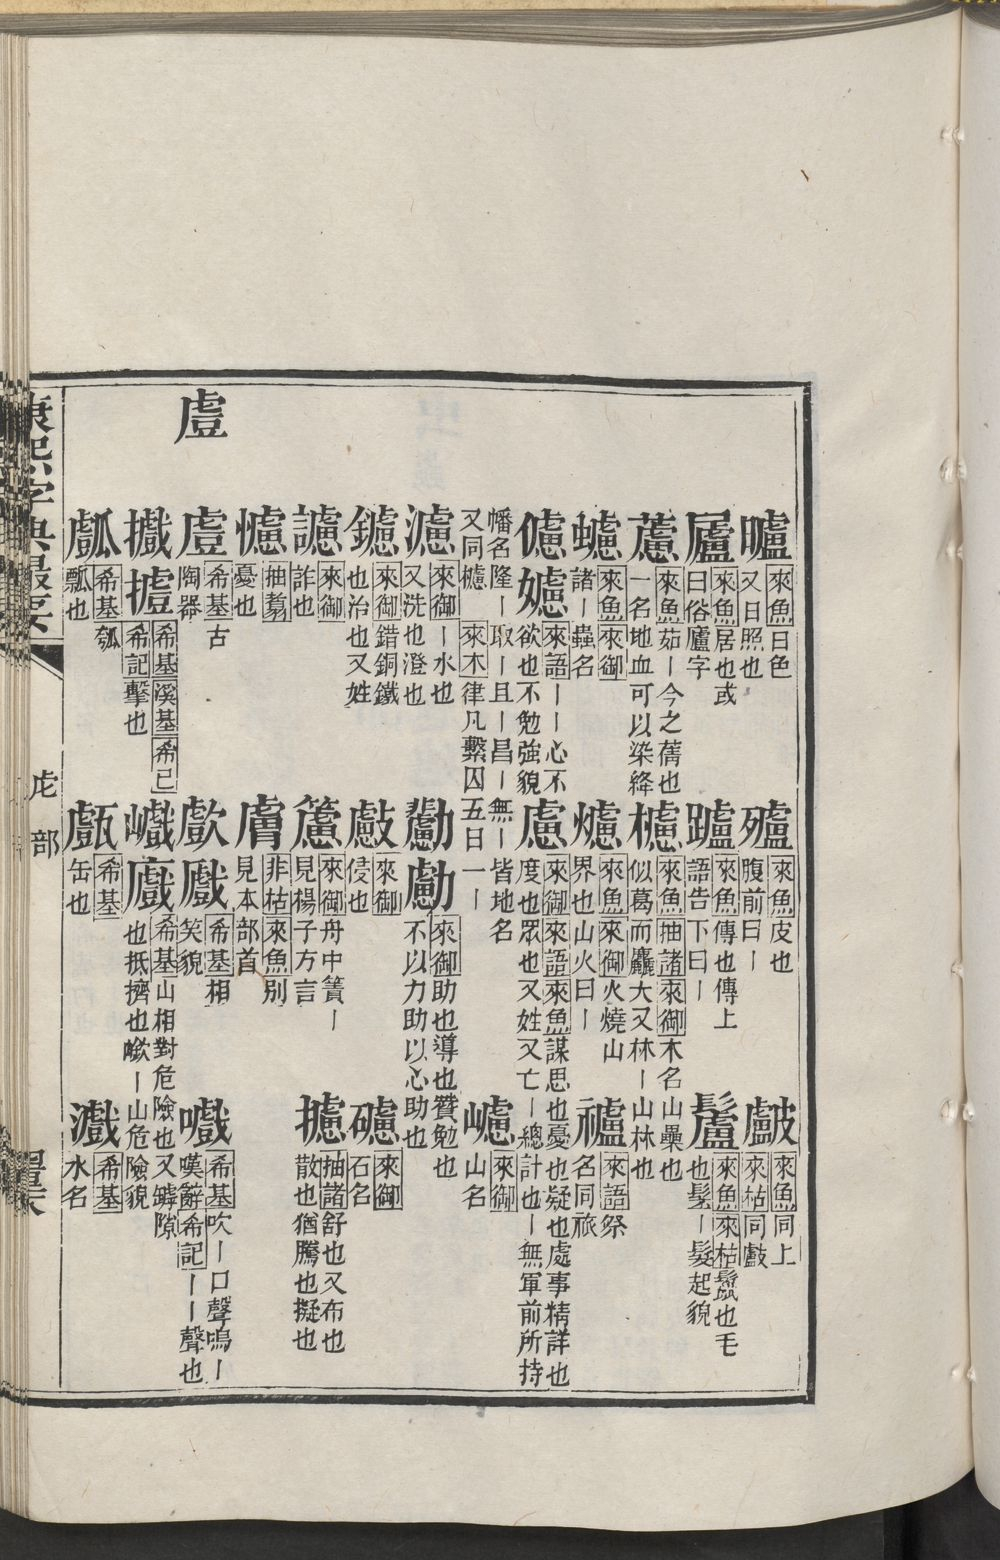 曥[來魚]日色又日照也 㱺[來魚]皮也腹前曰丨 皻[來魚]同上[來枯]同戲
廬[來魚]居也或曰俗廬字 臚[來魚]傳也傳上語告下曰丨 鬛[來魚][來枯]鬣也毛也髮丨髮起貌
藘[來魚]茹丨今之蒨也一名地血可以染絳 櫖[來魚][抽諸][來御]木名山櫐也似葛而麤大又林丨山林也
螰[來魚][來御]諸丨蟲名 爈[來魚][來御]火燒山界也山火曰丨 禠[來語]祭名同旅
儢勴[來語]丨丨心不欲也不勉強貌 慮[來御][來語][來魚]謀思也憂也疑也處事精詳也度也眾也又姓又亡丨總計也丨無軍前所持
幡名隆丨取丨且丨昌丨無丨皆地名
又同櫖[來木]律凡繫囚五日一丨 㠠[來御]山名
濾[來御]丨水也又洗也澄也 勴[來御]助也導也贊勉也不以力助以心助也
鑢[來御]錯銅鐵也治也又姓 [來御]侵也 礰[來御]石名
謯[來御]詐也 簏[來御]舟中簀丨見揚子方言 攄[抽諸]舒也又布也散也猶騰也擬也
懅[抽蒭]憂也 膚[非枯][來魚]別見本部首
䖒
䖒[希基]古陶器 歔戲[希基]相笑貌 嚱[希基]吹丨口聲嗚丨嘆辭[希記]丨丨聲也
㩗[希基][溪基][希己][希記]擊也 巇㕒[希基]山相對危險也又罅隙也抵擠也嶮丨山危險貌
㼋[希基]瓠瓢也 甗[希基]缶也 瀐[希基]水名
康熙字典最要
虍部